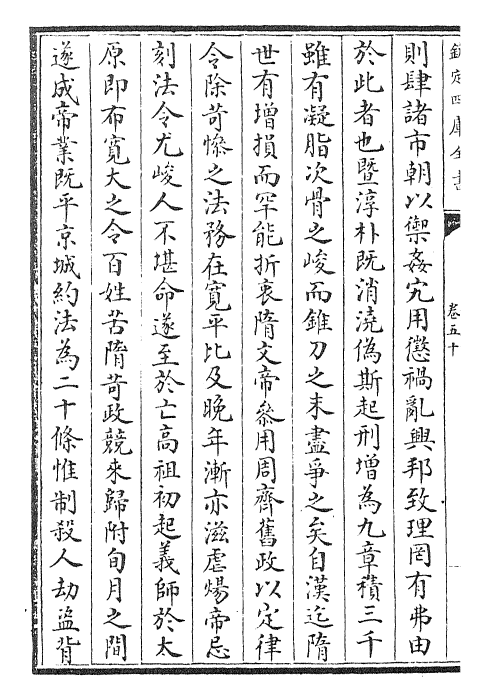 欽定四庫全書
卷五十
則肆諸市朝以禦姦宄用懲禍亂興邦致理罔有弗由
於此者也暨淳朴既消澆偽斯起刑增為九章積三千
雖有凝脂次骨之峻而錐刀之末盡爭之矣自漢迄隋
世有增損而罕能折衷隋文帝叅用周齊舊政以定律
令除苛慘之法務在寛平比及晚年漸亦滋虐煬帝忌
刻法令尤峻人不堪命遂至於亡髙祖初起義師於太
原即布寛大之令百姓苦隋苛政競来歸附旬月之間
遂成帝業既平京城約法為二十條惟制殺人劫盗背